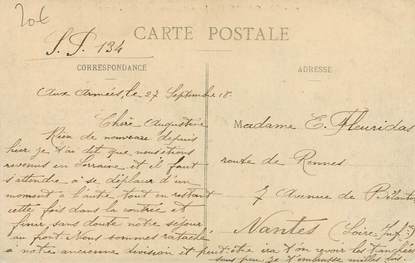 20€
CARTE POSTALE
S.P. 134
CORRESPONDANCE
ADRESSE
Aux Armées, le 27 Septembre 18.
Chère Augustine
Rien de nouveau depuis
hier je t'ai dit que nous étions
revenus en Lorraine et il faut
s'attendre à se déplacer d'un
moment à l'autre tout en restant
cette fois dans la contrée et
finir sans doute notre séjour
au front. Nous sommes rattachés
à notre ancienne division et peut être ira t'on revoir les tranchées
sans peu. Je t'embrasse mille fois.
Madame E. Fleuridas
route de Rennes
7 Avenue de
Nantes
(Loire Inf.